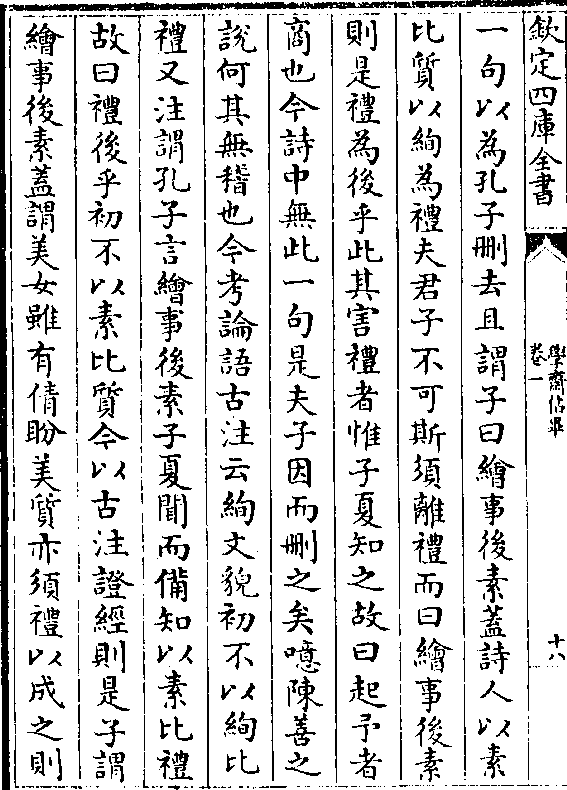 欽定四庫全書
學齋佔畢
卷一
十八
一句以為孔子刪去且謂子曰繪事後素蓋詩人以素
比質以絢為禮夫君子不可斯須離禮而曰繪事後素
則是禮為後乎此其害禮者惟子夏知之故曰起予者
商也今詩中無此一句是夫子因而刪之矣噫陳善之
說何其無稽也今考論語古注云絢文貌初不以絢比
禮又注謂孔子言繪事後素子夏聞而備知以素比禮
故曰禮後乎初不以素比質今以古注證經則是子謂
繪事後素蓋謂美女雖有倩盼美質亦須禮以成之則